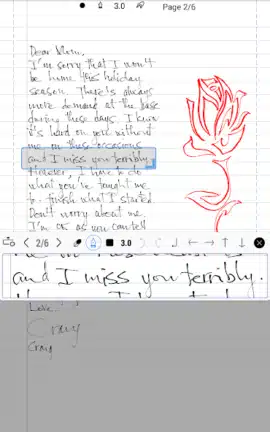 3.0 Page 2/6
Dear Mom,
I'm sorry that I won't
be home this holiday
season. There's always
more demand at the base
during these days. I know
it's hard on you without
me on these occasions
and I miss you terribly.
However, I have to do
what you've taught me
to finish what I started
Don't worry about me.
I'm OK as you can tell
2/6 3.0
and I miss you terribly.
Love,
Craig
Craig